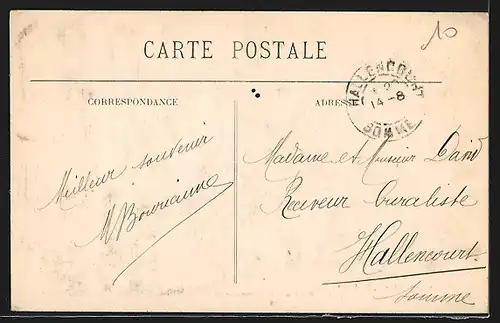 10
CARTE POSTALE
HALLENCOURT
14-8
SOMME
CORRESPONDANCE
ADRESSE
Meilleur souvenir
M Bourianne
Madame et Monsieur David
Receveur Buraliste
Hallencourt
Somme